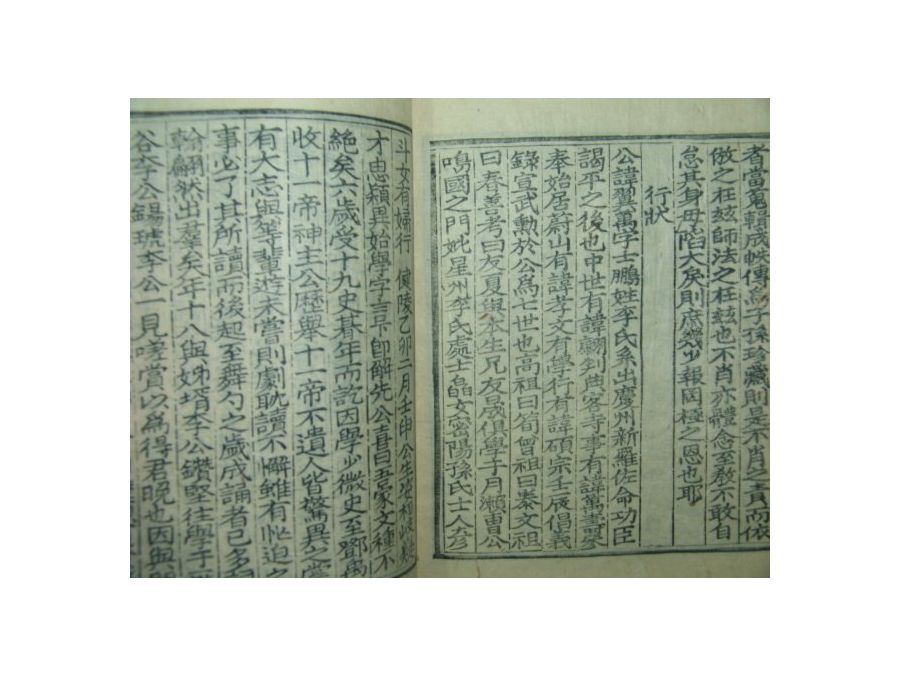 者當蒐輯成帙傳爲子孫珍藏則是不肖之責而依
倣之在玆師法之在玆也不肖亦體念至敎不敢自
怠其身毋陷大戾則庶幾少報罔極之恩也耶
行狀
公諱翼萬字士鵬姓李氏系出慶州新羅佐命功臣
謁平之後也中世有諱翺判典客寺事有諱萬
奉始居蔚山有諱孝文有學行有諱碩宗壬辰倡義
錄宣武勳於公爲七世也高祖曰筍曾祖曰泰文祖
曰春善考曰友夏與本生兄友晟俱學于月瀨曺公
鳴國之門妣星州李氏處士晶女密陽孫氏士人
斗女有婦行 健陵乙卯二月壬申公生姿相岐嶷
才思穎異始學字言下卽解先公喜曰吾家文種不
絶矣六歲受十九史朞年而訖因學少微史至鄧禹
收十一帝神主公歷擧十一帝不遺人皆驚異之
有大志與等輩遊未嘗則劇耽讀不懈雖有忙迫之
事必了其所讀而後起至舞勺之歲成誦者已多
翰翩然出羣矣年十八與姊壻李公鑽堅往學于
谷李公錫琥李公一見嗟賞以爲得君晩也因與